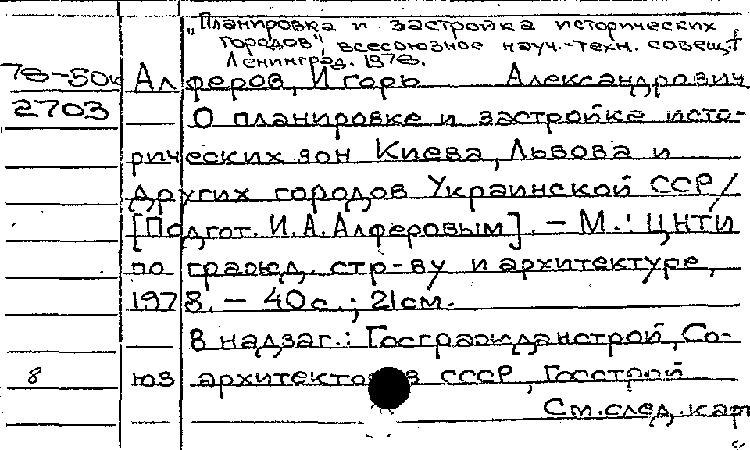 "Планировка и застройка исторических
городов", всесоюзное науч.-техн. совещ.
Ленинград. 1978.
Алферов, Игорь Александрович
2703
О планировке и застройке исто-
рических зон Киева, Львова и
других городов Украинской ССР/
[Подгот. И.А.Алферовым]. – М.: ЦНТИ
по гражд. стр-ву и архитектуре,
1978. – 40с.; 21см.
В надзаг.: Госгражданстрой, Со-
8
юз архитекторов СССР, Госстрой
См.след.карт